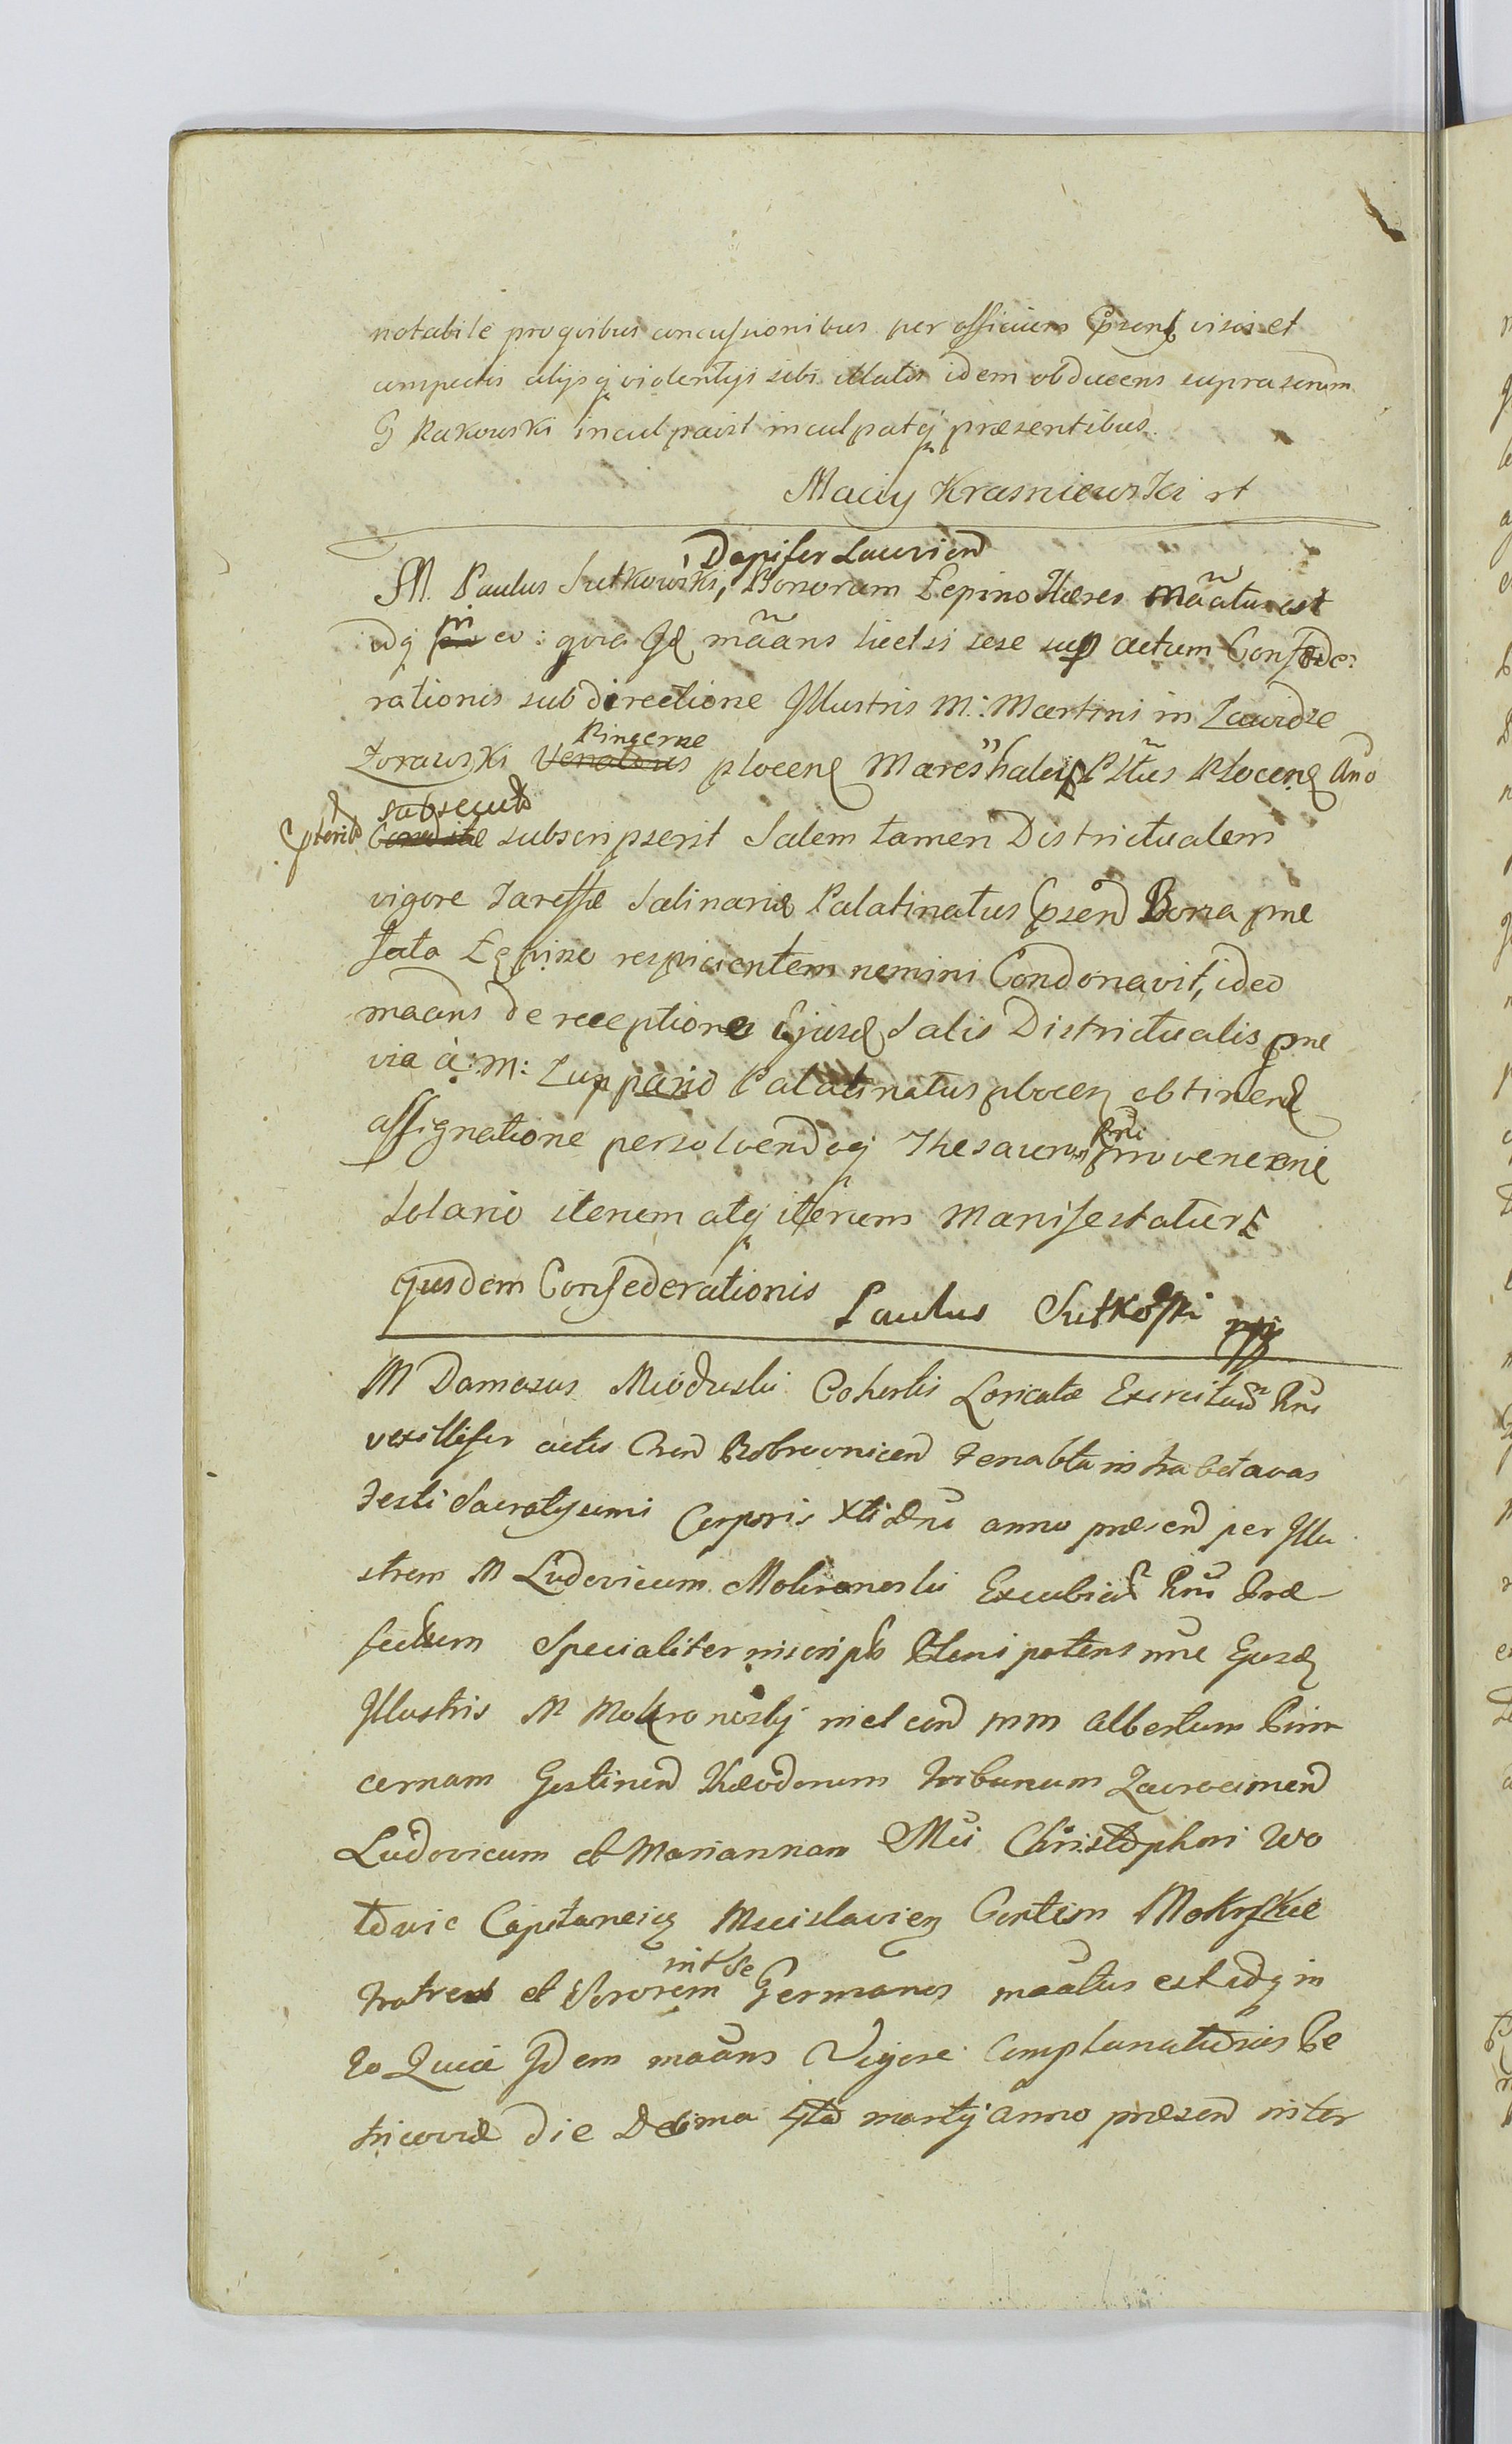 notabile pro qvibus concussionibus per officium Cpsens visis et
conspectis alijsq violentijs sibi illatis idem obducens suprascrium
G Rakowski inculpavit inculpatq præsentibus.
Maciy Krasniewski st
Dapifer Laurien
M. Paulus Sutkowski, Bonorum Łepino Hæres mãatus est
idq in eo: qvia Id mãans licet si sese sup actum Confæde:
rationis sub directione Illustris M: Martini in Laudze
Pincernæ
Zorawski Venatoris plocen Mareshalci Pltus Plocen Ano
subsecuto
subscripserit Salem tamen Districtualem
vigore Tareffæ Salinariæ Palatinatus Cpsen Bona præ
fata Łępino respicientem nemini Condonavit, ideo
maans de receptione Ejusd Salis Districtualis præ
via à M: Zuppario Palatinatus plocen obtinend
assignatione persolvendoq Thesauro Rni provenien
Solario iterum atq iterum Manifestatur
ejusdem Confederationis Paulus Sutkoski mp
M Damasus Mioduski Cohortis Loricatæ Exercituu Rni
vexillifer actis Cren Bobrownicen Ferialibus infra Octavas
Festi Sacratissimi Corporis Xti Dni anno præsen per Illu
strem M Ludovicum Mokronoski Excubiar Rni Præ
fectum Specialiter inscripto Plenipotens nne Ejusd
Illustris M Mokronoskj nec non MM Albertum Pin
cernam Gostinen Theodorum tribunum Zacrocimen
Ludovicum et Mariannam Mci Christophori Wo
towic Capitanei Mscislavien Consortem Mokrskie
inter se
fratres et Sororem Germanos maatus est idq in
eo Quia Idem maans Vigore Complanationis Pe
tricoviæ die Decima 4ta martij anno præsen inter